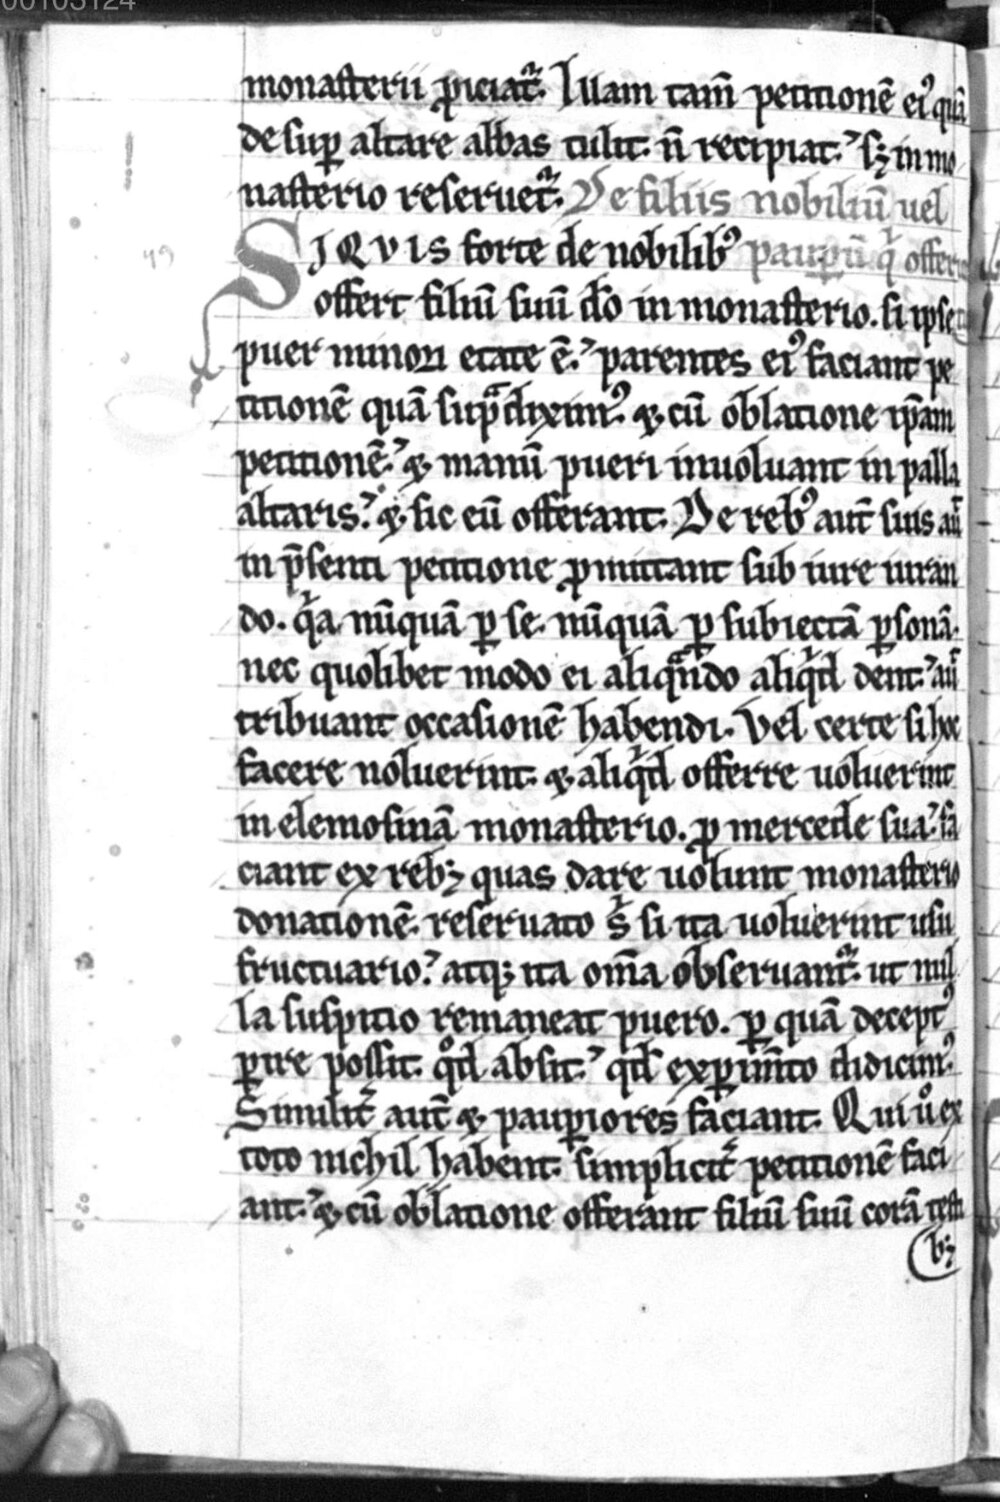 00103124
monasterii ꝓiciat᷑. Illam tam̄ petitionē eiꝰ quā
de sup̱ altare abbas tulit. n̄ recipiat. sꝫ in mo
nasterio reseruet᷑. De filiis nobiliū uel
SI QVIS forte de nobilibꝰ paup̱ū qͥ offerū
offert filiū suū do in monasterio. si ipse
puer minori etate ē. parentes eiꝰ faciant pe
titionē quā sup̃ diximꝰ. ⁊ cū oblatione ip̄am
petitionē. ⁊ manū pueri inuoluant in palla
altaris. ⁊ sic eū offerant. De rebꝰ aut̄ suis aut̄
in p̄senti petitione ꝓmittant sub iure iuran
do. qͥa nūquā ꝑ se. nūquā ꝑ subiectā ꝑsonā.
nec quolibet modo ei aliqᷓndo aliqͥd dent. aut̄
tribuant occasionē habendi. Vel certe si hoc
facere noluerint. ⁊ aliqͥd offerre uoluerint
in elemosinā monasterio. ꝓ mercede sua. fa
ciant ex rebꝫ quas dare uolunt monasterio
donationē. reseruato s̾ si ita uoluerint usu
fructuario. atqꝫ ita om̄a obseruant᷑. ut nul
la suspitio remaneat puero. ꝑ quā deceptꝰ
ꝑire possit. qͦd absit. qd̄ exꝑim̄to didicimꝰ.
Similit᷑ aut̄ ⁊ pauꝑiores faciant. Qui uͦ ex
toto nichil habent. simplicit᷑ petitionē faci
ant. ⁊ cū oblatione offerant filiū suū corā testi
bꝫ